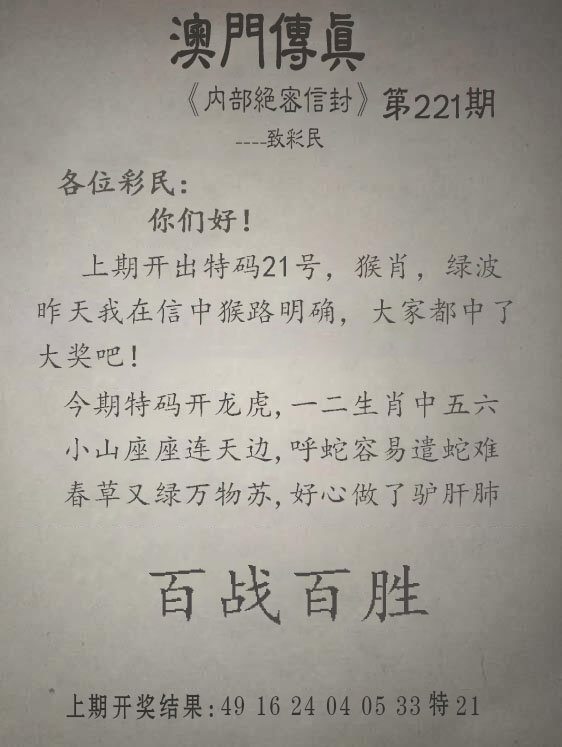 澳門傳眞
《内部絕密信封》第221期
----致彩民
各位彩民：
你们好！
上期开出特码21号，猴肖，绿波
昨天我在信中猴路明确，大家都中了
大奖吧！
今期特码开龙虎,一二生肖中五六
小山座座连天边,呼蛇容易遣蛇难
春草又绿万物苏,好心做了驴肝肺
百战百胜
上期开奖结果:49 16 24 04 05 33 特 21